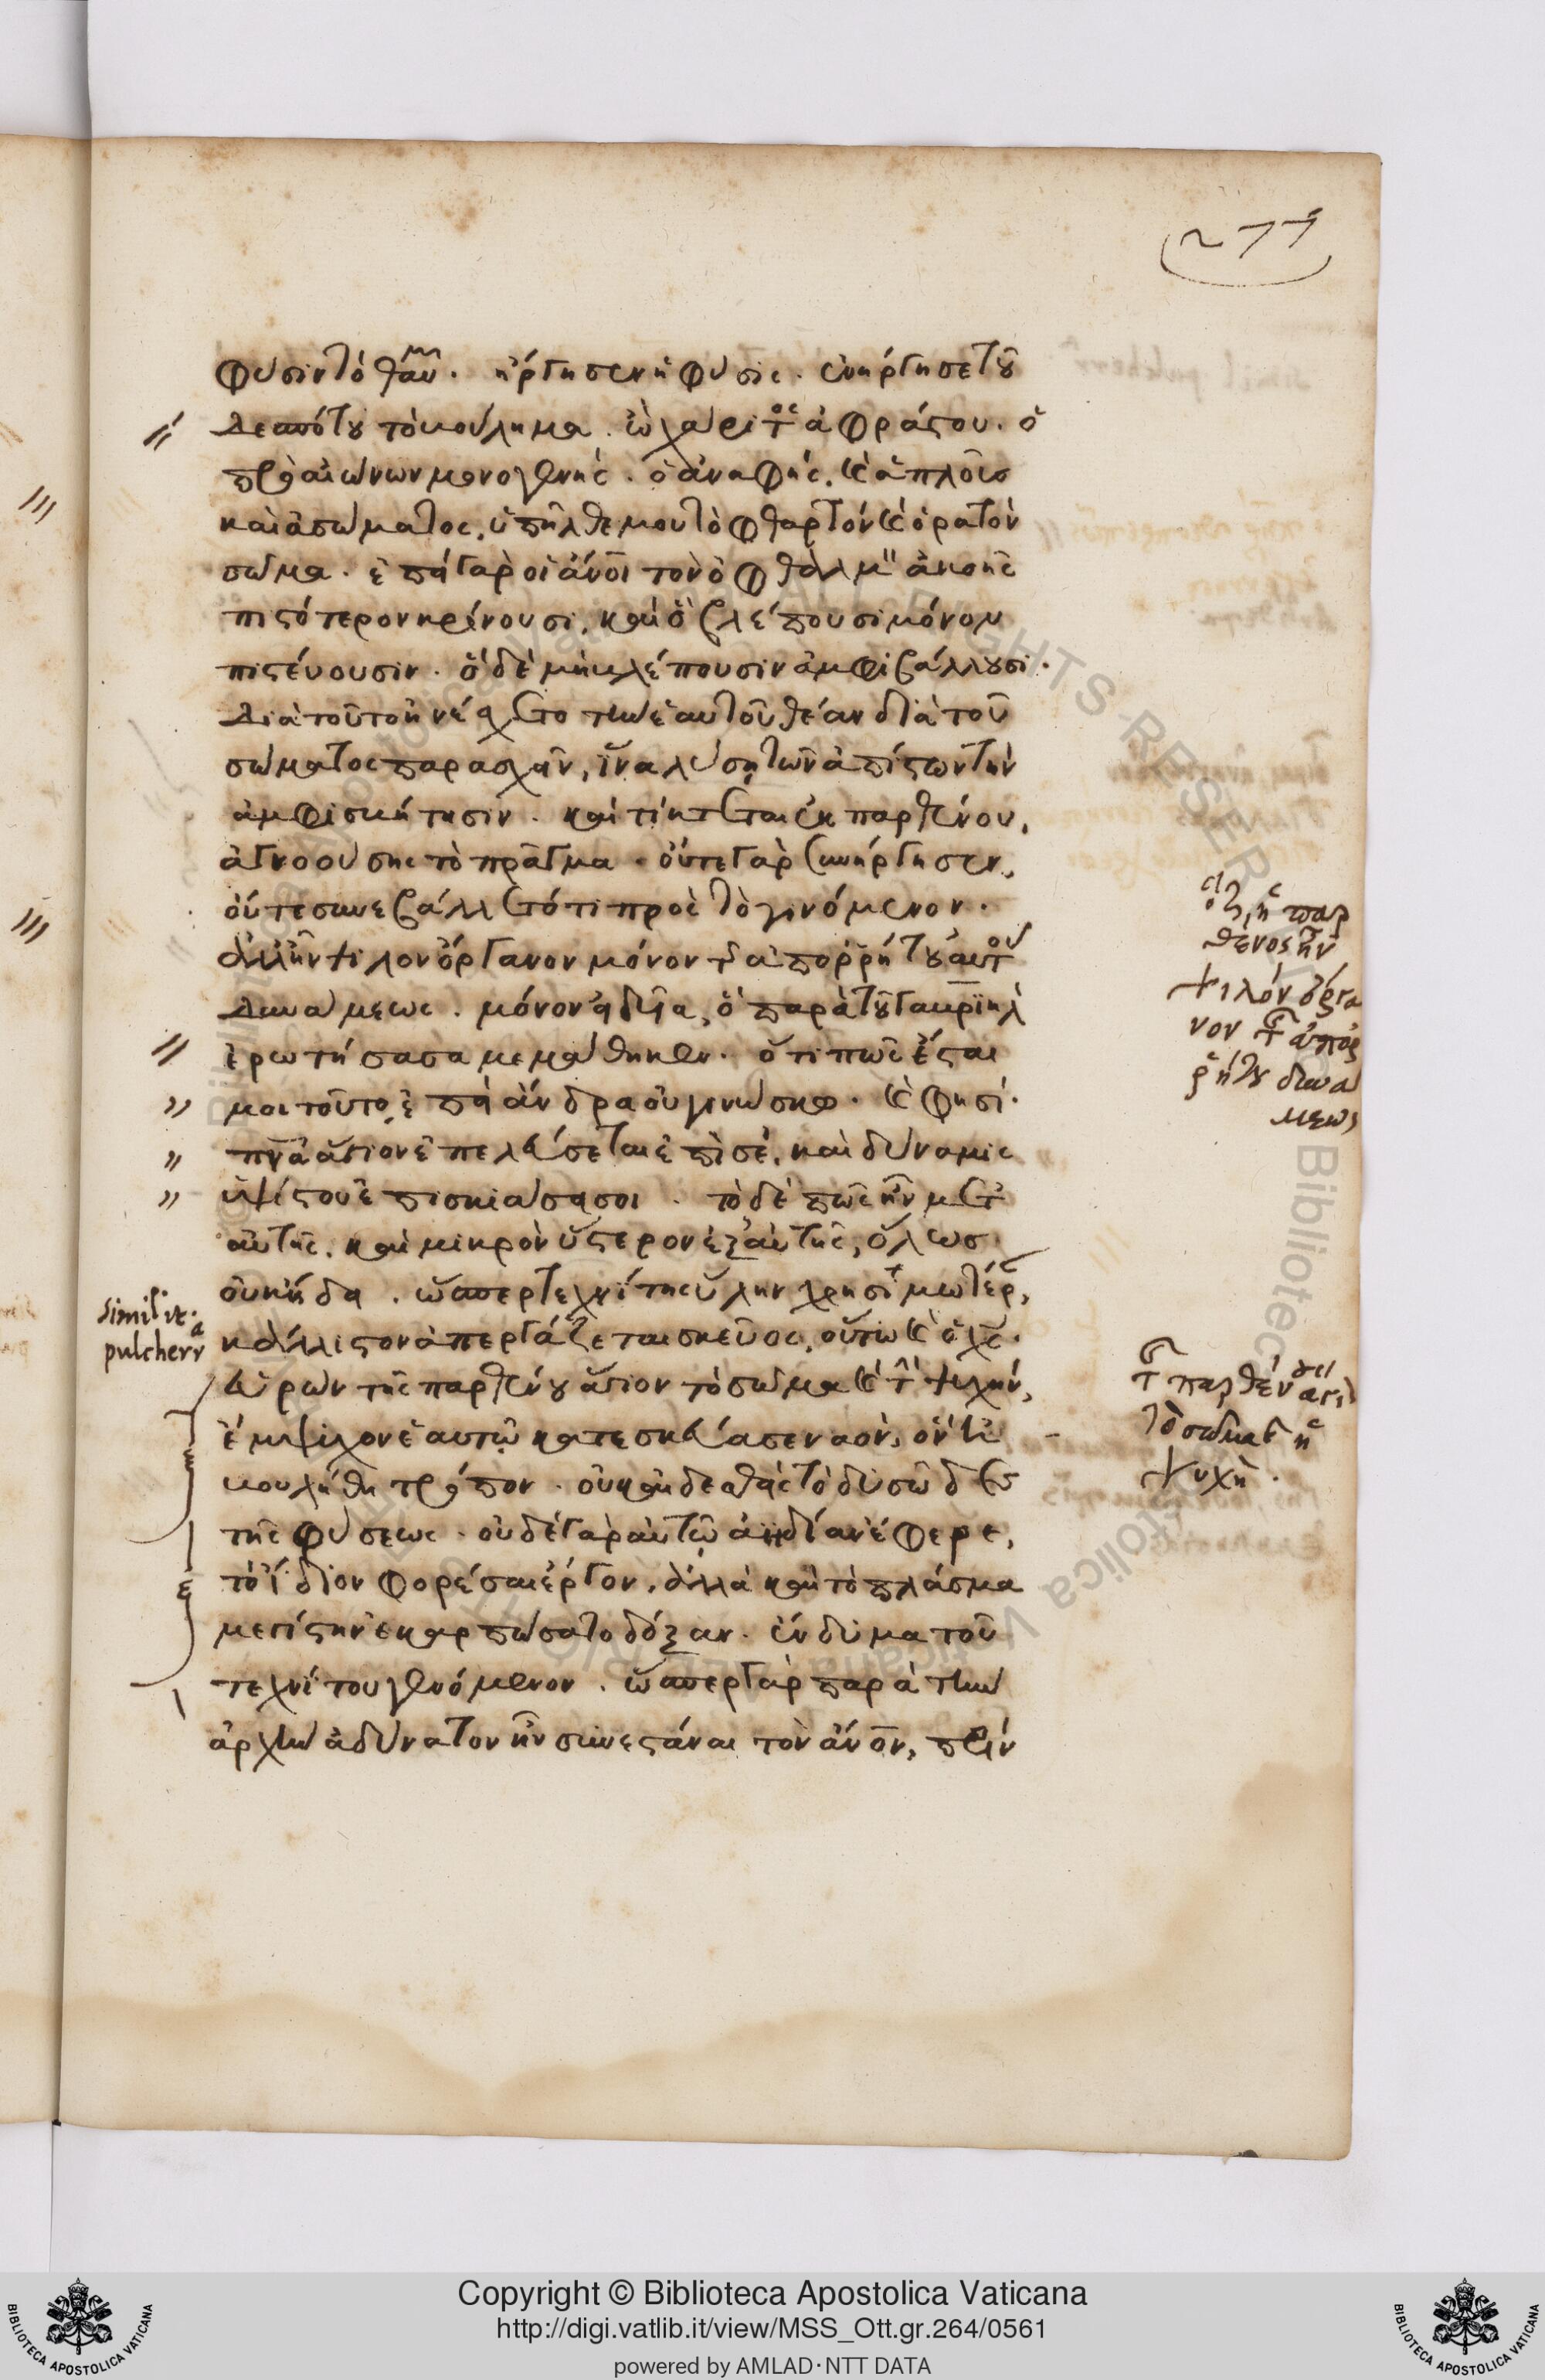 277
φύσιν τὸ θαῦμ. ἤργησεν ἡ φύσις. ἐνήργησε τοῦ
δεσπότου τὸ βούλημα. ὢ χάριτος ἀφράστου. ὁ
πρὸ αἰώνων μονογενής. ὁ ἀναφής. καὶ ἁπλοῦς
καὶ ἀσώματος, ὑπῆλθε μου τὸ φθαρτὸν καὶ ὁρατὸν
σῶμα. ἐπεὶ γὰρ οἱ ἄνοι τὸν ὀφθαλμὸν ἀκοῆς
πιστότερον κρίνουσι, καὶ ὃ βλέπουσι μόνον
πιστεύουσιν. ὃ δὲ μὴ βλέπουσιν ἀμφιβάλλουσι.
διὰ τοῦτο ἠνέσχετο τὴν ἑαυτοῦ θέαν διὰ τοῦ
σώματος παρασχεῖν, ἵνα λύσῃ τῶν ἀπίστων τὴν
ἀμφισβήτησιν. καὶ τίκτεται ἐκ παρθένου,
ἀγνοούσης τὸ πρᾶγμα. οὔτε γὰρ συνήργησεν,
οὔτε συνεβάλλετό τι πρὸς τὸ γινόμενον.
ἀλλ' ἦν ψιλὸν ὄργανον μόνον τῆς ἀπορρήτου αὐτοῦ
δυνάμεως. μόνον εἰδυῖα, ὃ παρὰ τοῦ γαυριὴλ
ἐρωτήσασα μεμάθηκεν. ὅτι πῶς ἔσται
μοι τοῦτο, ἐπεὶ ἄνδρα οὐ γινώσκω. καὶ φησί.
πνα ἅγιον ἐπελεύσεται ἐπὶ σέ, καὶ δύναμις
ὑψίστου ἐπισκιάσει σοι. τὸ δὲ πῶς ἦν μετ'
αὐτῆς, καὶ μικρὸν ὕστερον ἐξ αὐτῆς, ὅλως
οὐκ ᾔδει. ὥσπερ τεχνίτης ὕλην χρησιμωτέρ,
κάλλιστον ἀπεργάζεται σκεῦος, οὕτω καὶ ὁ χς.
εὑρὼν τῆς παρθένου ἅγιον τὸ σῶμα καὶ τὴν ψυχήν,
ἔμψυχον ἑαυτῷ κατεσκεύασε ναόν, ὃν
βουλήθη τρόπον. οὐκ αἰδεσθεὶς τὸ δυσῶδες
τῆς φύσεως. οὐδὲ γὰρ αὐτῷ ἀηδίαν ἔφερε,
τὸ ἴδιον φορέσαι ἔργον, ἀλλὰ καὶ τὸ πλάσμα
μεγίστην ἐκαρπώσατο δόξαν. ἔνδυμα τοῦ
τεχνίτου γενόμενον. ὥσπερ γὰρ παρὰ τὴν
ἀρχὴν ἀδύνατον ἦν συνεστάναι τὸν ἄνον, πρὶν
ὅτι ἡ παρ
θένος ἦν
ψιλὸν ὄργα
νον τῆς ἀπορ
ρήτου δυνα
μεως
simil it.
pulcherra
τῆς παρθένου ἅγι
τὸ σῶμα καὶ ἡ
ψυχή.
Copyright © Biblioteca Apostolica Vaticana
http://digi.vatlib.it/view/MSS_Ott.gr.264/0561
powered by AMLAD·NTT DATA
BIBLIOTECA APOSTOLICA VATICANA
BIBLIOTECA APOSTOLICA VATICANA